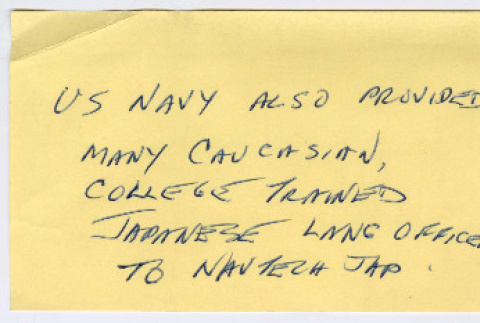 US NAVY ALSO PROVIDED
MANY CAUCASIAN,
COLLEGE TRAINED
JAPANESE LANG OFFICE
TO NAVTECH JAP.